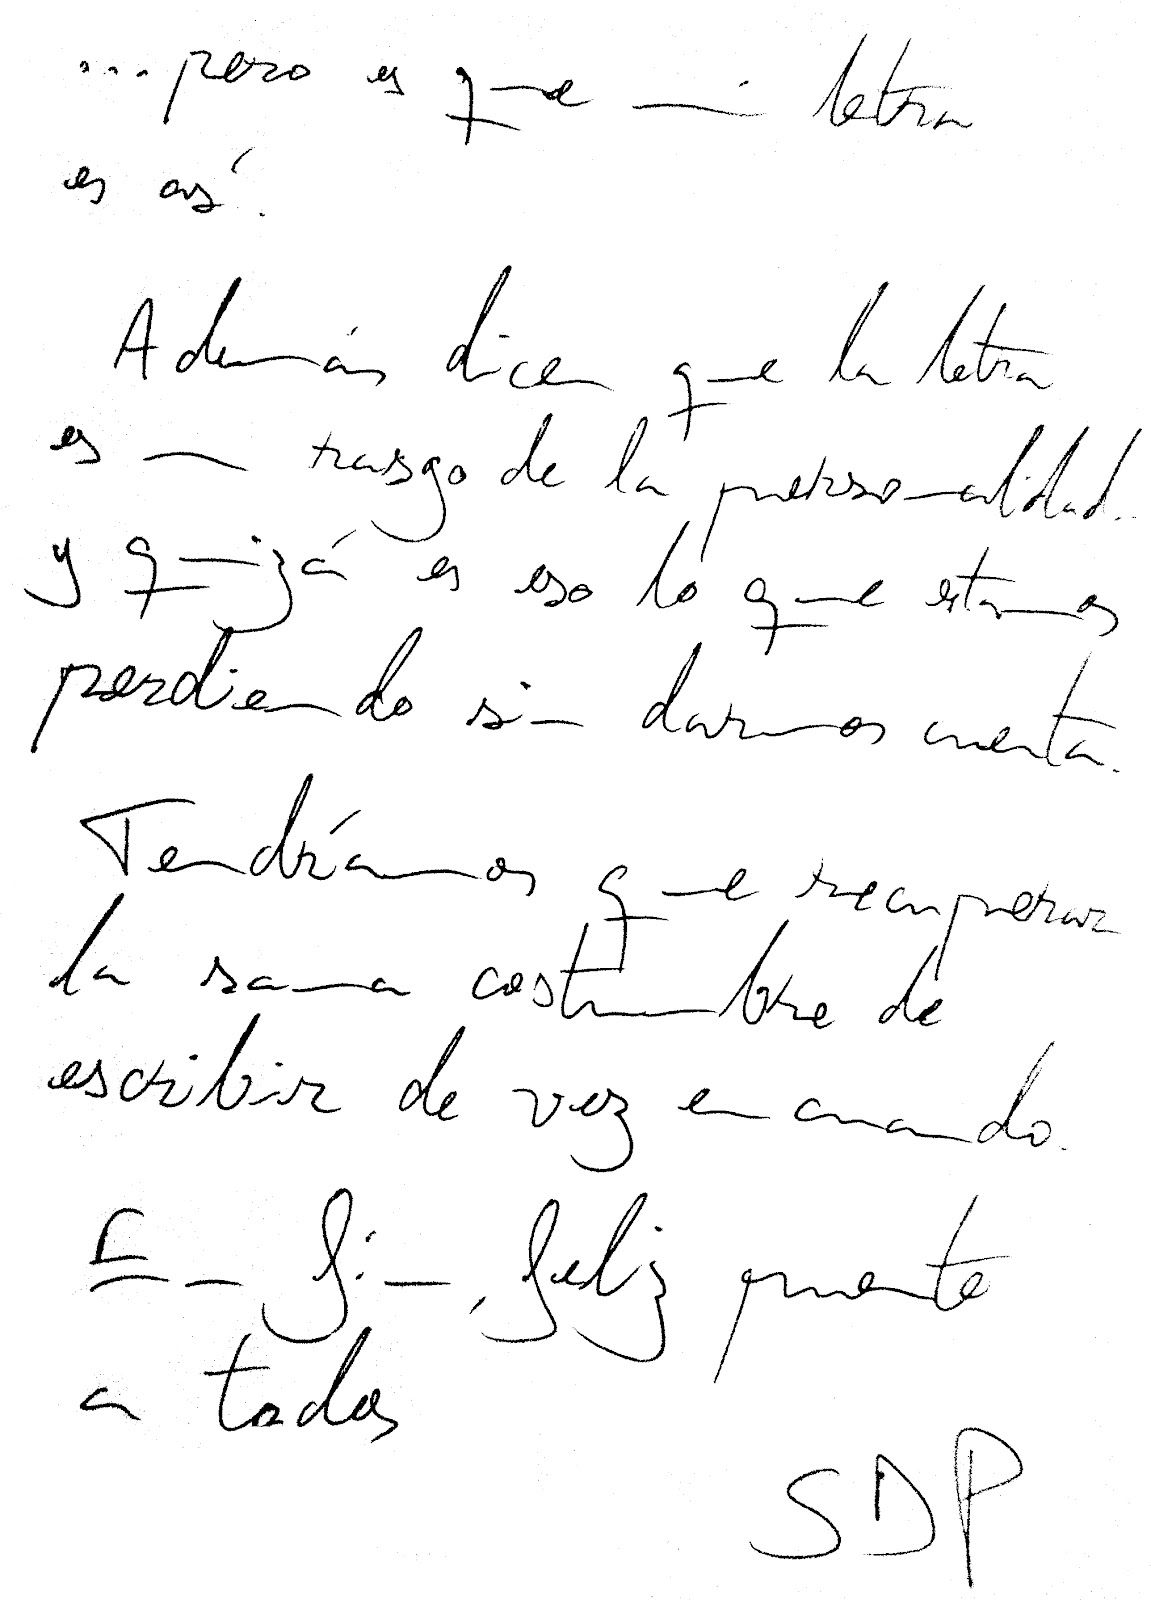 ... pero es que mi letra
es así.
Además dicen que la letra
es un rasgo de la personalidad..
y quizá es eso lo que estamos
perdiendo sin darnos cuenta.
Tendríamos que recuperar
la sana costumbre de
escribir de vez en cuando.
En fin, feliz puente
a todos
SDP